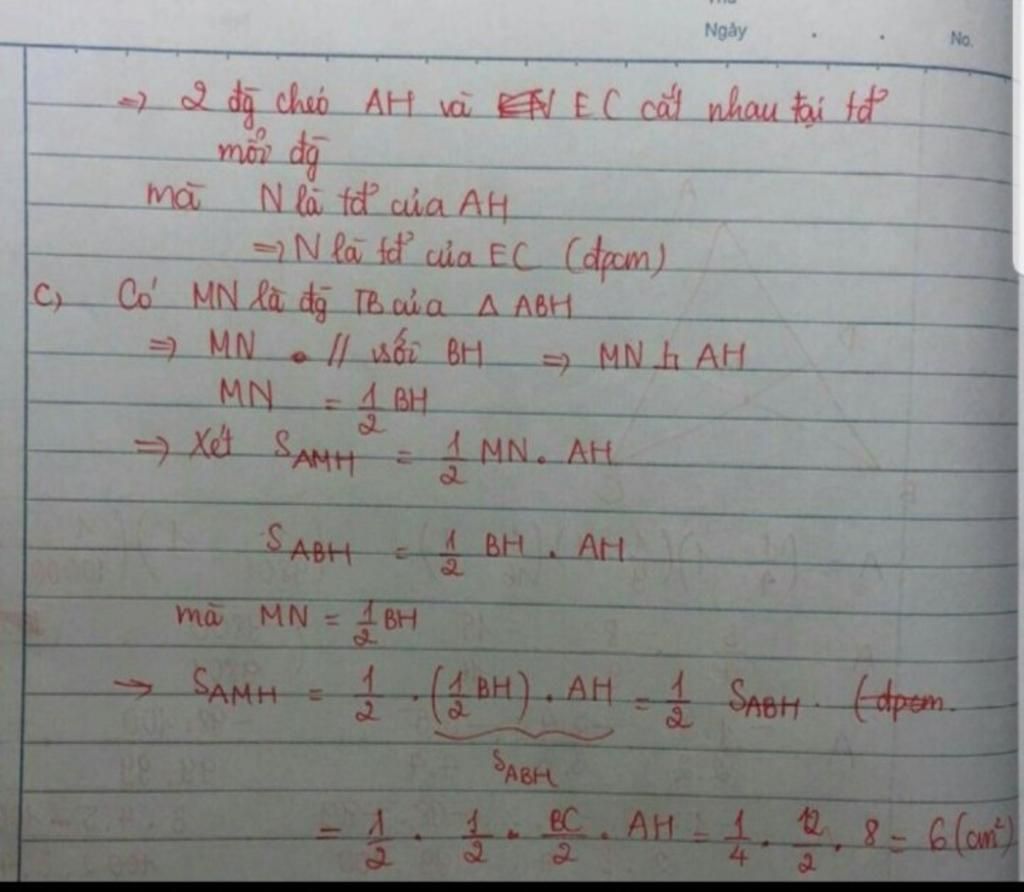 Ngày . . No.
=> 2 đg̃ chéo AH và EC cắt nhau tại tđ²
mỗi đg̃
mà N là tđ² của AH
=> N là tđ² của EC (đpcm)
c, Có MN là đg̃ TB của Δ ABH
=> MN // với BH => MN ⊥ AH
MN = 1/2 BH
=> Xét S_AMH = 1/2 MN. AH
S_ABH = 1/2 BH . AH
mà MN = 1/2 BH
→ S_AMH = 1/2 . (1/2 BH) . AH = 1/2 S_ABH. (đpcm.
S_ABH
= 1/2 . 1/2 . BC/2 . AH = 1/4 . 12/2 . 8 = 6 (cm²)